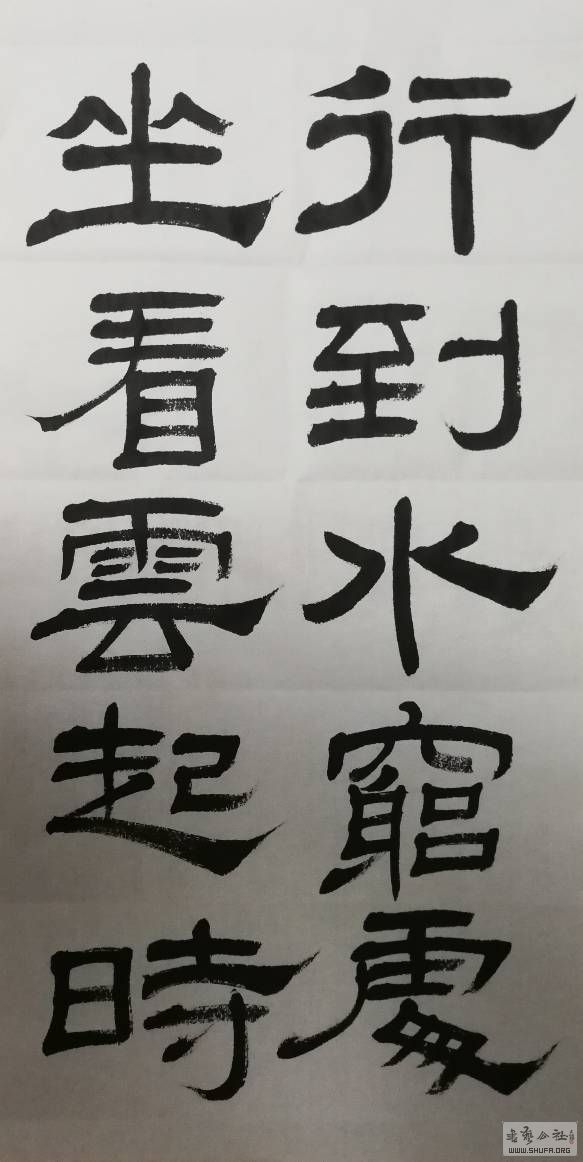 行到水窮處
坐看雲起時
WWW.SHUFA.ORG